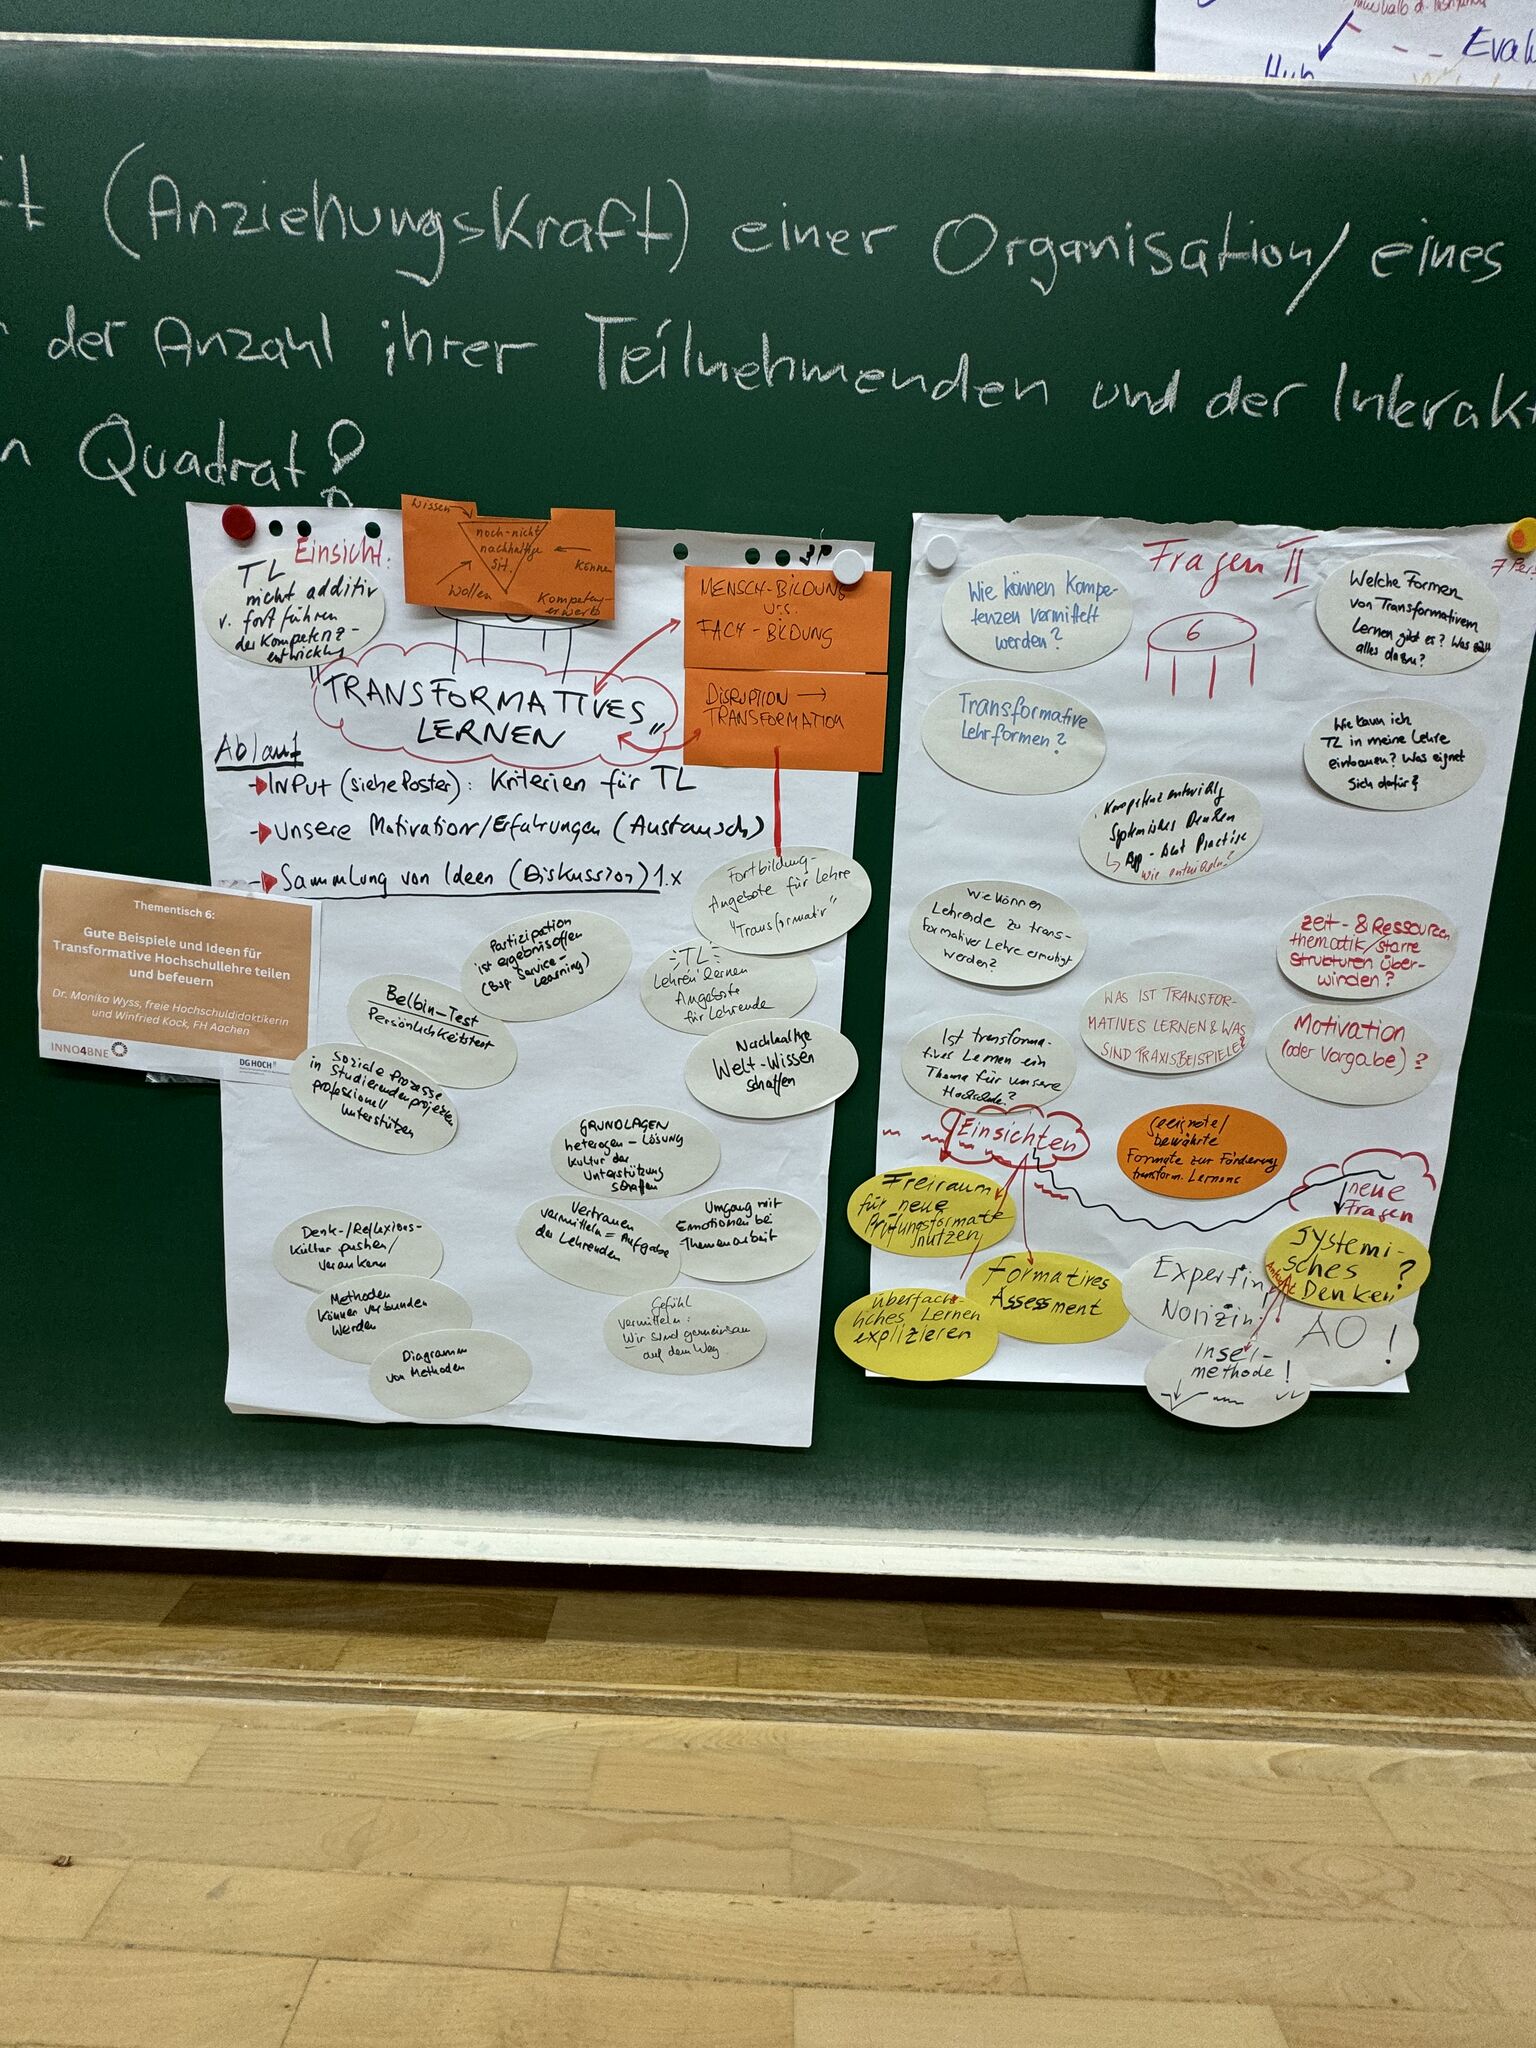 (Anziehungskraft) einer Organisation/ eines
der Anzahl ihrer Teilnehmenden und der Interakt
Quadrat!
Evalu
Einsicht:
TL
nicht additiv
v. fortführen
der Kompetenz-
entwicklung
Wissen
noch-nicht
nachhaltige
Sit.
Können
Wollen
Kompetenz-
erwerb
MENSCH-BILDUNG
v.s.
FACH-BILDUNG
DISRUPTION →
TRANSFORMATION
"TRANSFORMATIVES
LERNEN"
Ablauf
Input (siehe Poster): Kriterien für TL
Unsere Motivation/Erfahrungen (Austausch)
Sammlung von Ideen (Diskussion) 1.x
Fortbildung-
Angebote für Lehre
"Transformativ"
TL
Lehren lernen
Angebote
für Lehrende
Nachhaltige
Welt-Wissen
schaffen
Partizipation
ist ergebnisoffen
(Bsp Service-
Learning)
Belbin-Test
Persönlichkeitstest
Soziale Prozesse
in Studierendenprojekten
professionell
unterstützen
GRUNDLAGEN
heterogen-Lösung
Kultur der
Unterstützung
schaffen
Vertrauen
vermitteln = Aufgabe
der Lehrenden
Umgang mit
Emotionen bei
Themenarbeit
Denk-/Reflexions-
kultur pushen/
verankern
Methoden
können verbunden
werden
Diagramm
von Methoden
Gefühl
vermitteln:
Wir sind gemeinsam
auf dem Weg
Thementisch 6:
Gute Beispiele und Ideen für
Transformative Hochschullehre teilen
und befeuern
Dr. Monika Wyss, freie Hochschuldidaktikerin
und Winfried Kock, FH Aachen
INNO4BNE
DG HOCH
Fragen II
7 Pers
6
Wie können Kompe-
tenzen vermittelt
werden?
Welche Formen
von Transformativem
Lernen gibt es? Was zählt
alles dazu?
Transformative
Lehrformen?
Wie kann ich
TL in meine Lehre
einbauen? Was eignet
sich dafür?
Systemisches Denken
Best Practise
wie entwickeln?
Wie können
Lehrende zu trans-
formativer Lehre ermutigt
werden?
Zeit- & Ressourcen
thematik/starre
Strukturen über-
winden?
WAS IST TRANSFOR-
MATIVES LERNEN & WAS
SIND PRAXISBEISPIELE?
Ist transforma-
tives Lernen ein
Thema für unsere
Hochschule?
Motivation
(oder Vorgabe)?
Einsichten
geeignete/
bewährte
Formate zur Förderung
transform. Lernens
neue
Fragen
Freiraum
für neue
Prüfungsformate
nutzen
Formatives
Assessment
Überfach-
liches Lernen
explizieren
Systemi-
sches
Denken?
Expertin
AO!
Insel-
methode!